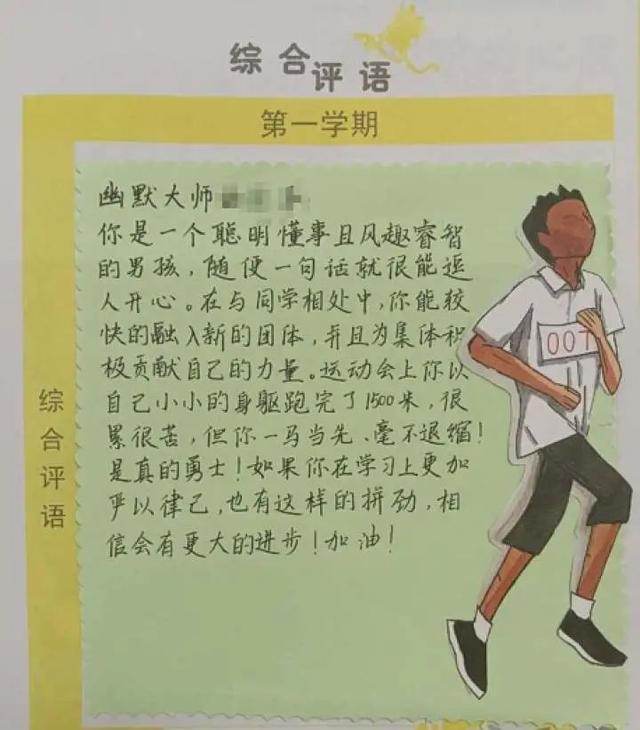 综合评语
第一学期
综合评语
幽默大师
你是一个聪明懂事且风趣睿智
的男孩，随便一句话就很能逗
人开心。在与同学相处中，你能较
快的融入新的团体，并且为集体积
极贡献自己的力量。运动会上你以
自己小小的身躯跑完了1500米，很
累很苦，但你一马当先、毫不退缩！
是真的勇士！如果你在学习上更加
严以律己，也有这样的拼劲，相
信会有更大的进步！加油！
007